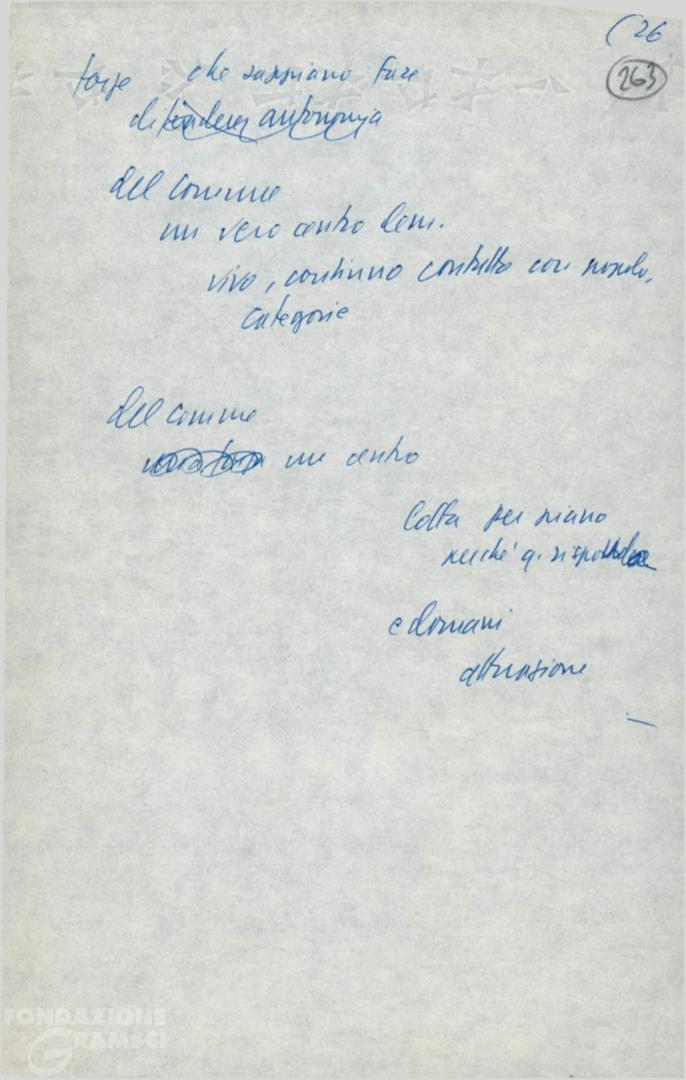 (26
263
forze che sappiano fare
difendere autonomia
del comune
un vero centro dem.
vivo, continuo contatto con popolo,
categorie
del comune
un centro
Lotta per piano
perché q. risponda
e domani
attuazione
FONDAZIONE
GRAMSCI